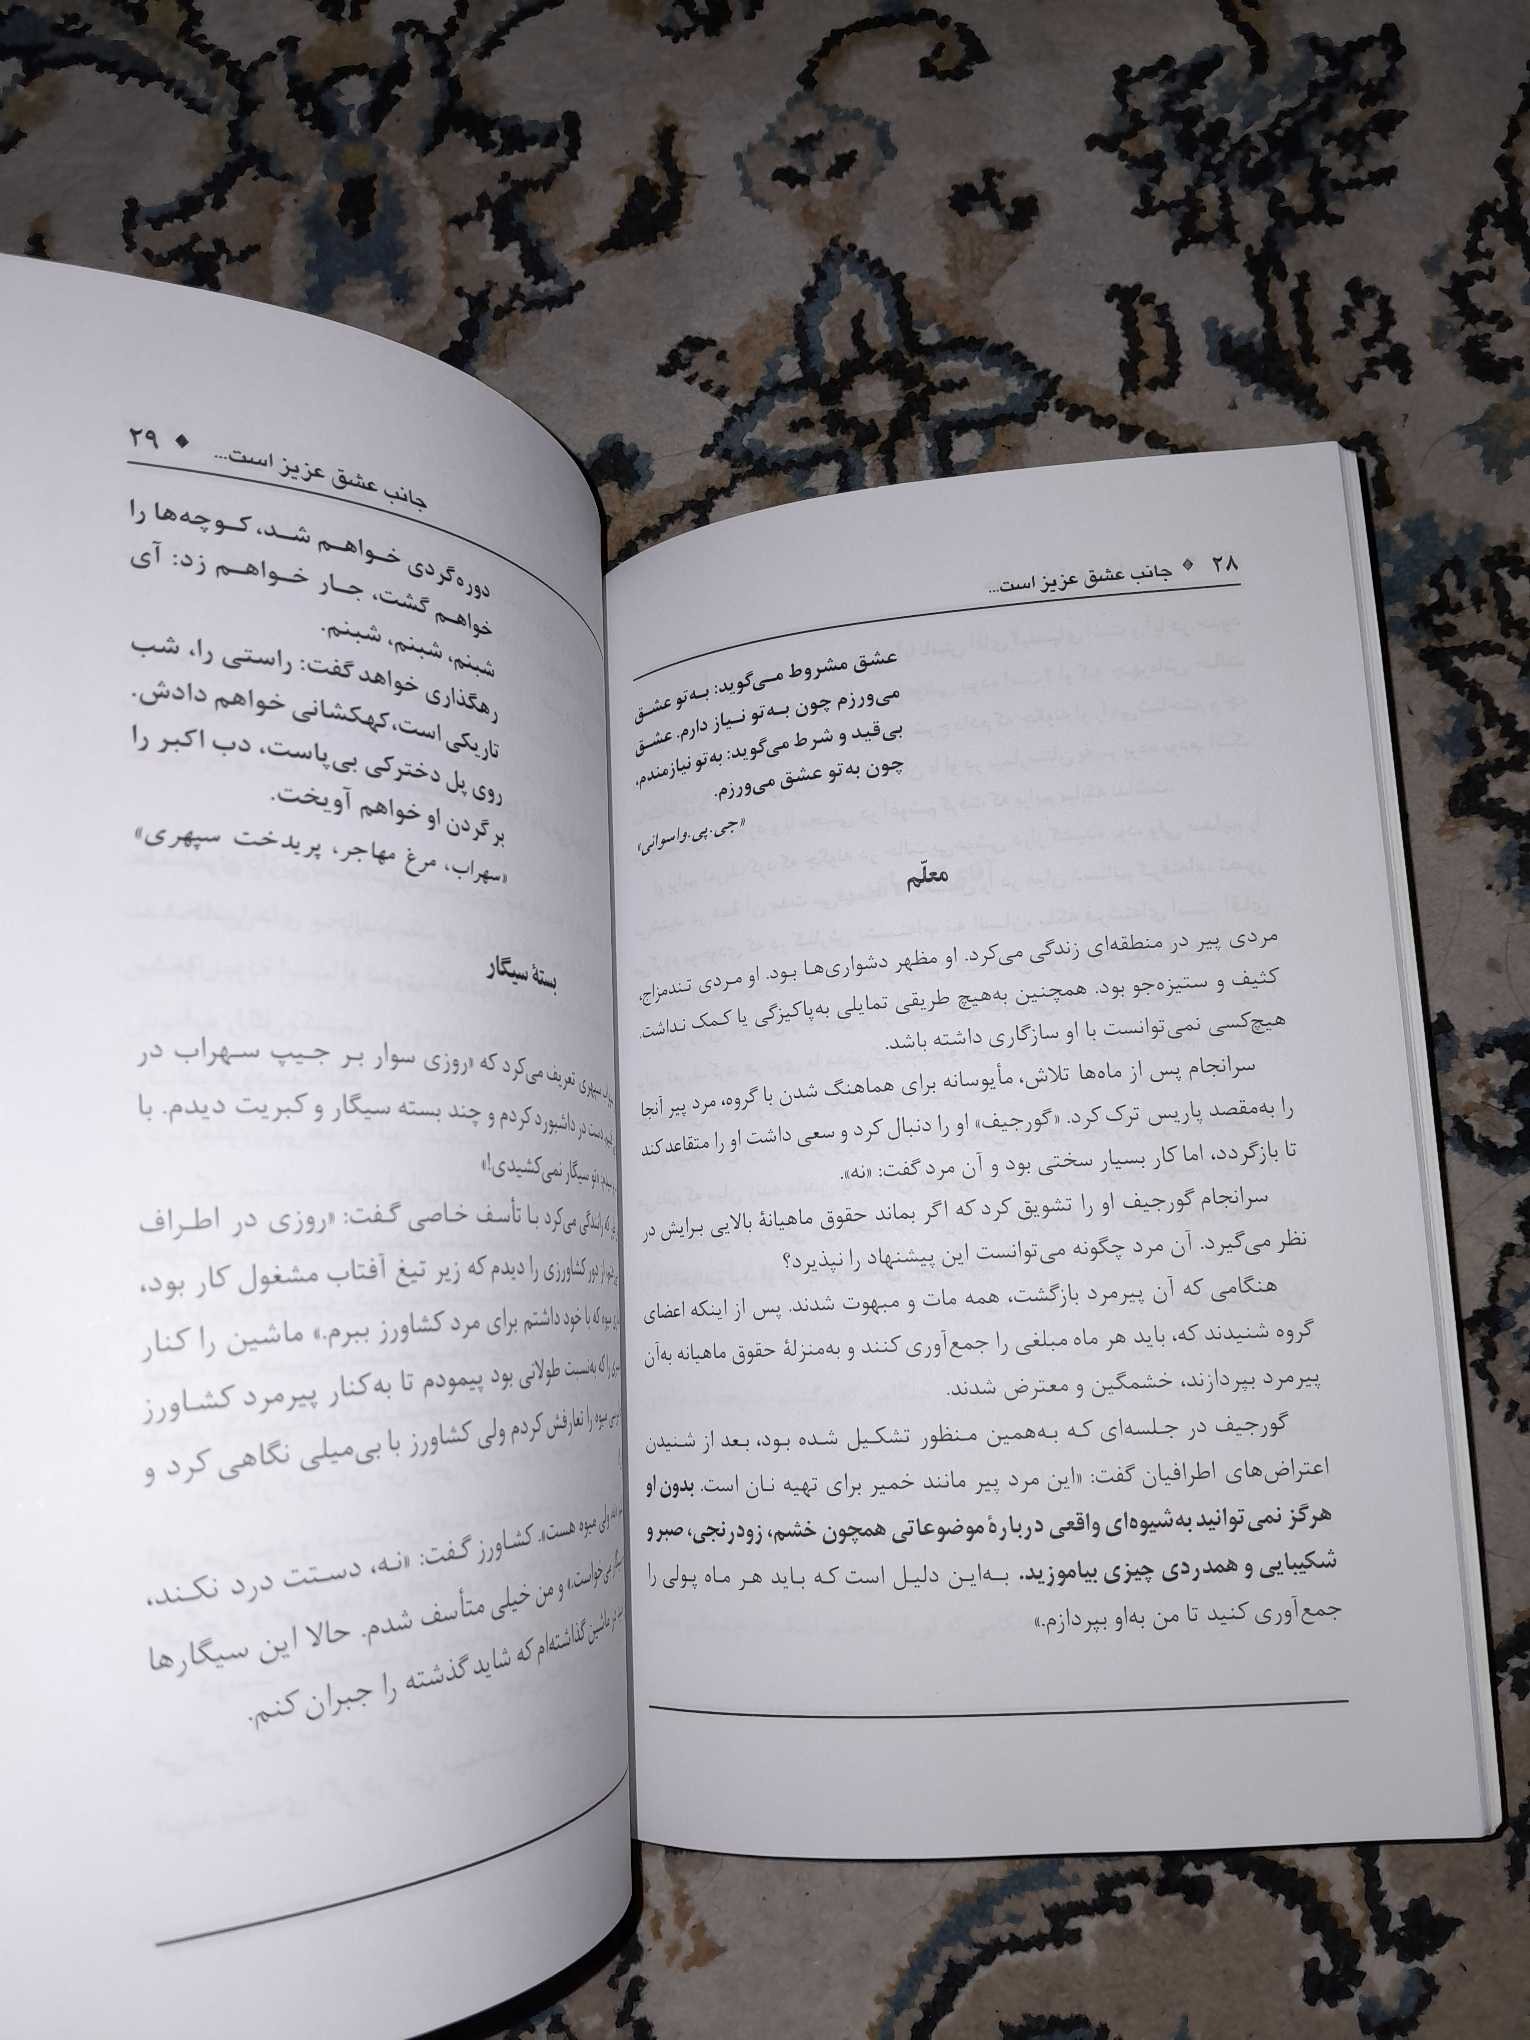 ۲۸ ◆ جانب عشق عزیز است...
عشق مشروط می‌گوید: به‌تو عشق
می‌ورزم چون به‌تو نیاز دارم. عشق
بی‌قید و شرط می‌گوید: به‌تو نیازمندم،
چون به‌تو عشق می‌ورزم.
«جی.پی.واسوانی»
معلّم
مردی پیر در منطقه‌ای زندگی می‌کرد. او مظهر دشواری‌ها بود. او مردی تندمزاج،
کثیف و ستیزه‌جو بود. همچنین به‌هیچ طریقی تمایلی به‌پاکیزگی یا کمک نداشت.
هیچ‌کسی نمی‌توانست با او سازگاری داشته باشد.
سرانجام پس از ماه‌ها تلاش، مأیوسانه برای هماهنگ شدن با گروه، مرد پیر آنجا
را به‌مقصد پاریس ترک کرد. «گورجیف» او را دنبال کرد و سعی داشت او را متقاعد کند
تا بازگردد، اما کار بسیار سختی بود و آن مرد گفت: «نه».
سرانجام گورجیف او را تشویق کرد که اگر بماند حقوق ماهیانهٔ بالایی برایش در
نظر می‌گیرد. آن مرد چگونه می‌توانست این پیشنهاد را نپذیرد؟
هنگامی که آن پیرمرد بازگشت، همه مات و مبهوت شدند. پس از اینکه اعضای
گروه شنیدند که، باید هر ماه مبلغی را جمع‌آوری کنند و به‌منزلهٔ حقوق ماهیانه به‌آن
پیرمرد بپردازند، خشمگین و معترض شدند.
گورجیف در جلسه‌ای که به‌همین منظور تشکیل شده بود، بعد از شنیدن
اعتراض‌های اطرافیان گفت: «این مرد پیر مانند خمیر برای تهیه نان است. بدون او
هرگز نمی‌توانید به‌شیوه‌ای واقعی دربارهٔ موضوعاتی همچون خشم، زودرنجی، صبر و
شکیبایی و همدردی چیزی بیاموزید. به‌این دلیل است که باید هر ماه پولی را
جمع‌آوری کنید تا من به‌او بپردازم.»
جانب عشق عزیز است... ◆ ۲۹
دوره‌گردی خواهم شد، کوچه‌ها را
خواهم گشت، جار خواهم زد: آی
شبنم، شبنم، شبنم.
رهگذاری خواهد گفت: راستی را، شب
تاریکی است، کهکشانی خواهم دادش.
روی پل دخترکی بی‌پاست، دب اکبر را
بر گردن او خواهم آویخت.
«سهراب، مرغ مهاجر، پریدخت سپهری»
بستهٔ سیگار
سپهری تعریف می‌کرد که «روزی سوار بر جیپ سهراب در
دست در داشبورد کردم و چند بسته سیگار و کبریت دیدم. با
«تو سیگار نمی‌کشیدی!»
که رانندگی می‌کرد با تأسف خاصی گفت: «روزی در اطراف
از دور کشاورزی را دیدم که زیر تیغ آفتاب مشغول کار بود،
میوه که با خود داشتم برای مرد کشاورز ببرم.» ماشین را کنار
را که به‌نسبت طولانی بود پیمودم تا به‌کنار پیرمرد کشاورز
میوه را تعارفش کردم ولی کشاورز با بی‌میلی نگاهی کرد و
ولی میوه هست». کشاورز گفت: «نه، دستت درد نکند،
می‌خواست.» و من خیلی متأسف شدم. حالا این سیگارها
در ماشین گذاشته‌ام که شاید گذشته را جبران کنم.